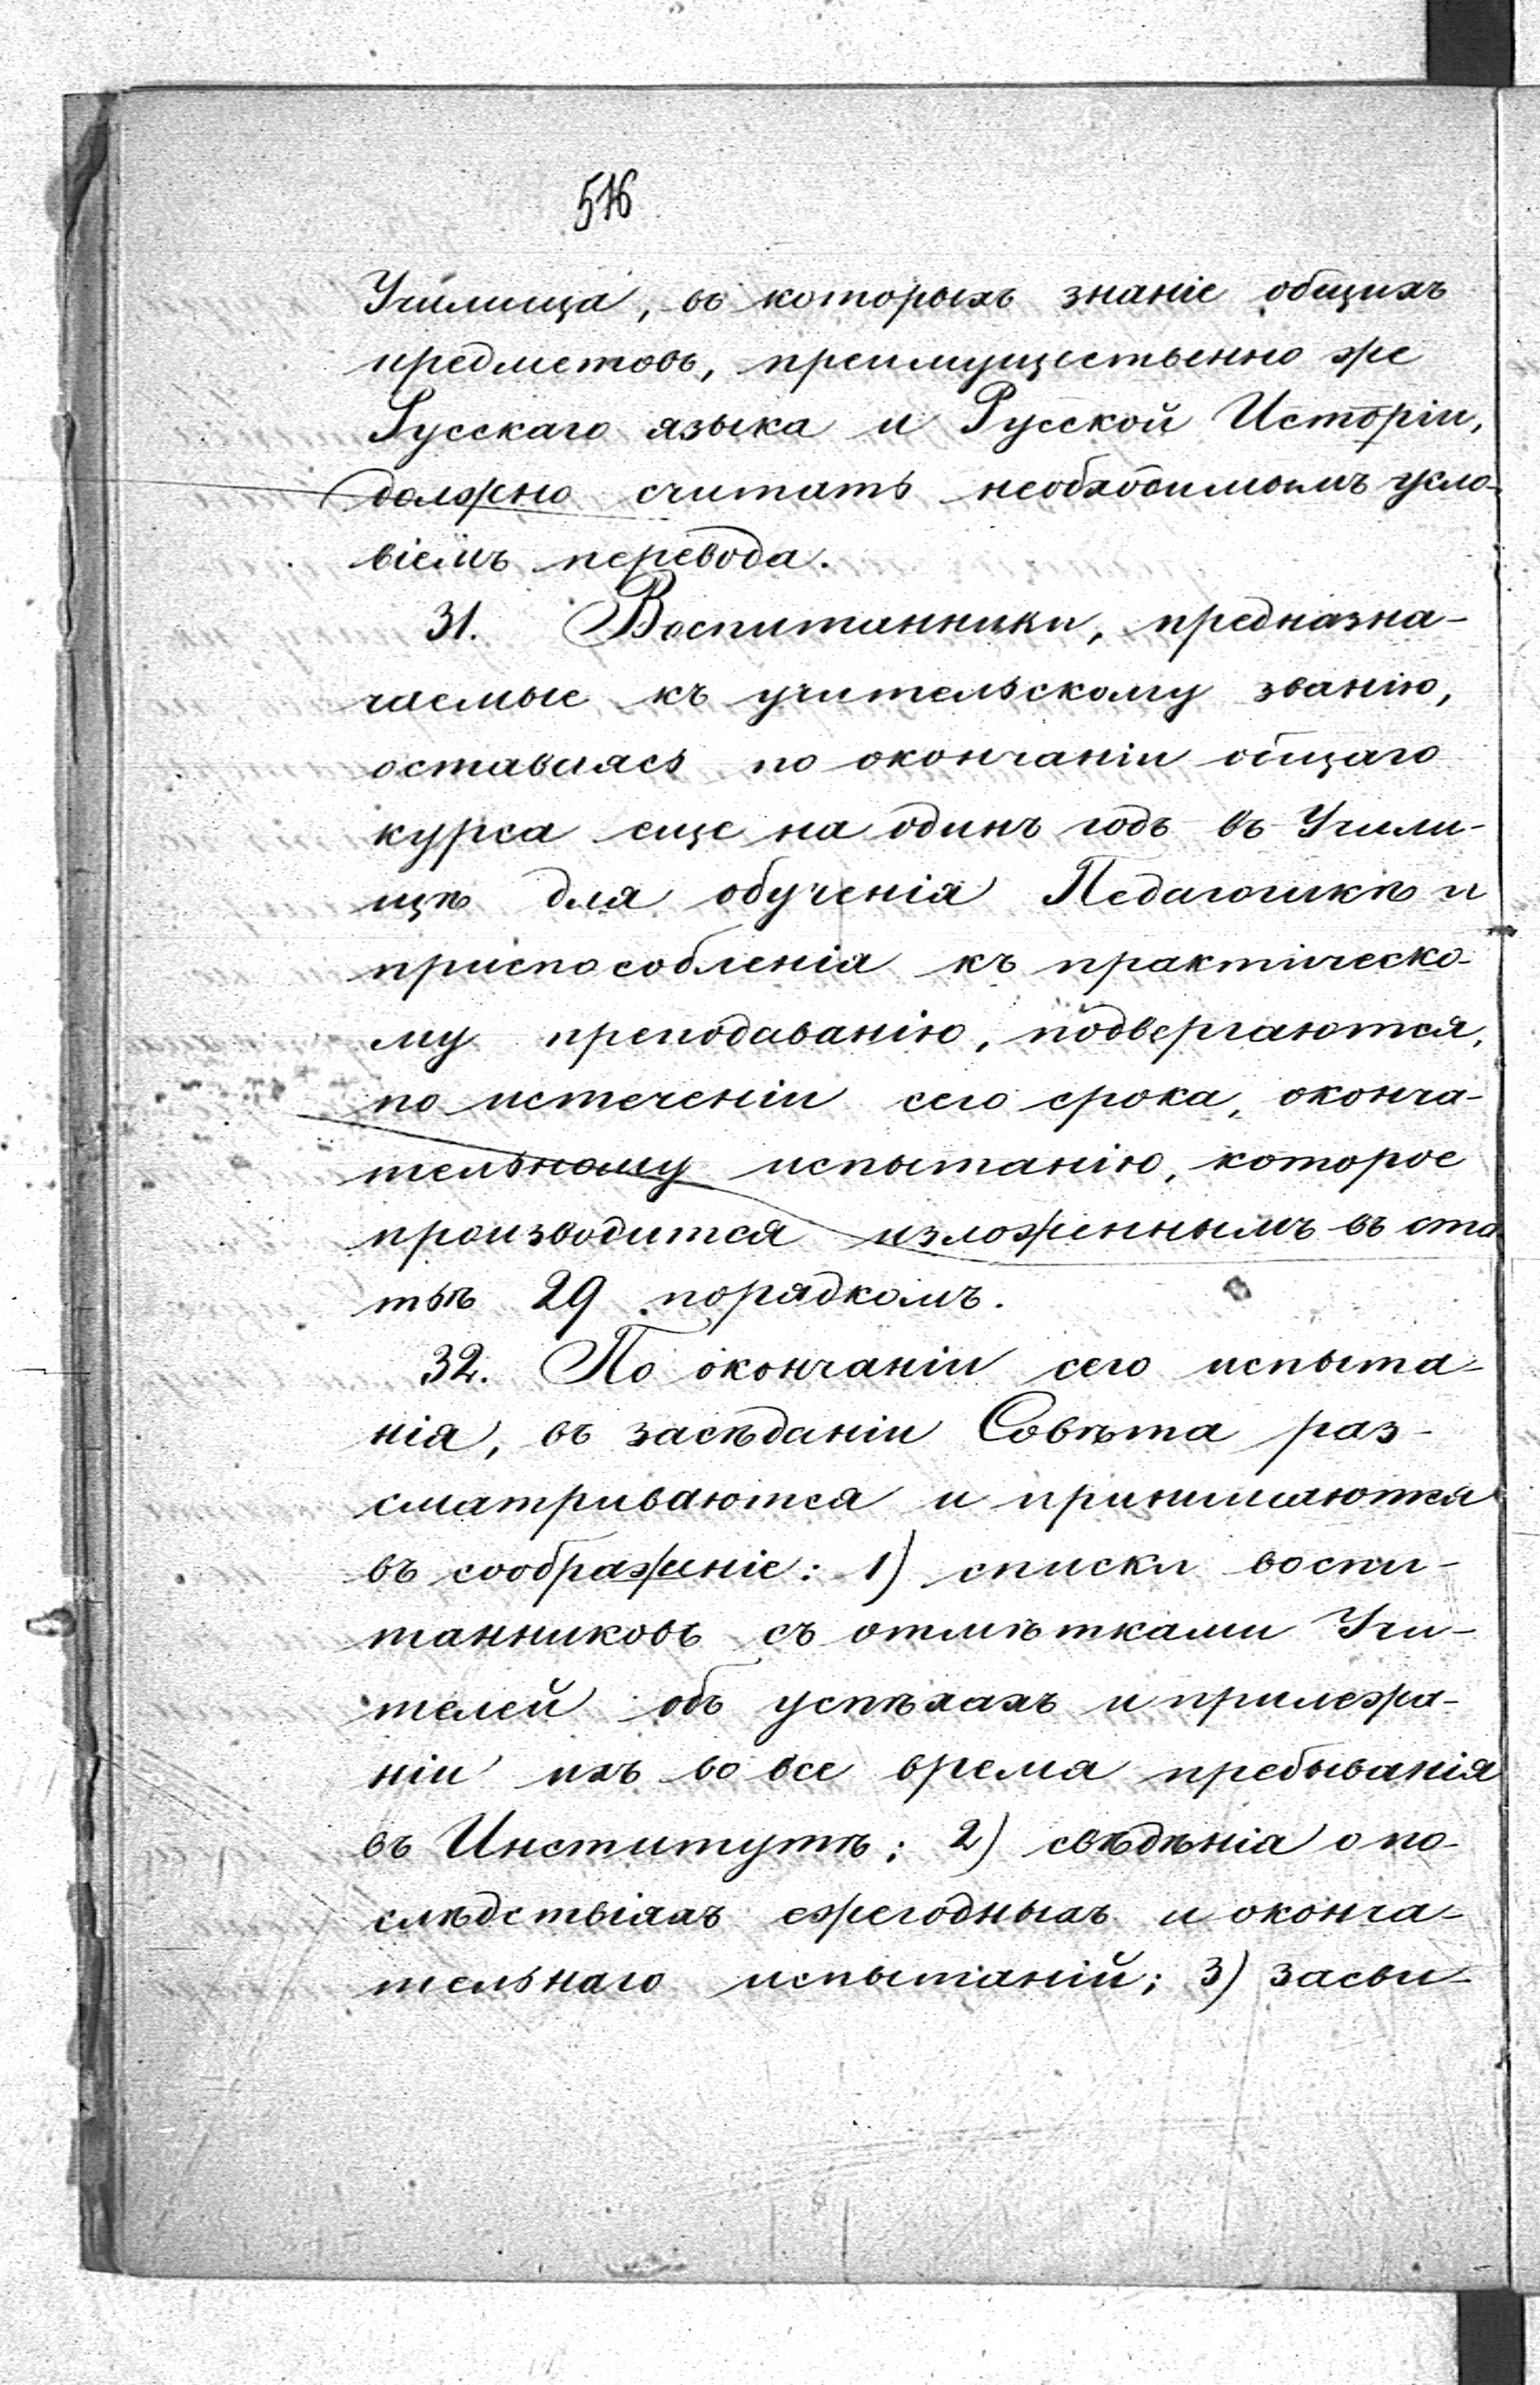 516
Училища, въ которыхъ знаніе общихъ
предметовъ, преимущественно же
Русскаго языка и Русской Исторіи,
должно считать необходимымъ усло-
віемъ перевода.
31. Воспитанники, предназна-
чаемые къ учительскому званію,
оставаясь по окончаніи общаго
курса еще на одинъ годъ въ Учили-
щѣ для обученія Педагогикѣ и
приспособленія къ практическо-
му преподаванію, подвергаются,
по истеченіи сего срока, оконча-
тельному испытанію, которое
производится изложеннымъ въ ста
тьѣ 29 порядкомъ.
32. По окончаніи сего испыта-
нія, въ засѣданіи Совѣта раз-
сматриваются и принимаются
въ соображеніе: 1) списки воспи-
танниковъ съ отмѣтками Учи-
телей объ успѣхахъ и прилежа-
ніи ихъ во все время пребыванія
въ Институтѣ; 2) свѣдѣнія о по-
слѣдствіяхъ ежегодныхъ и оконча-
тельнаго испытаній; 3) засви-